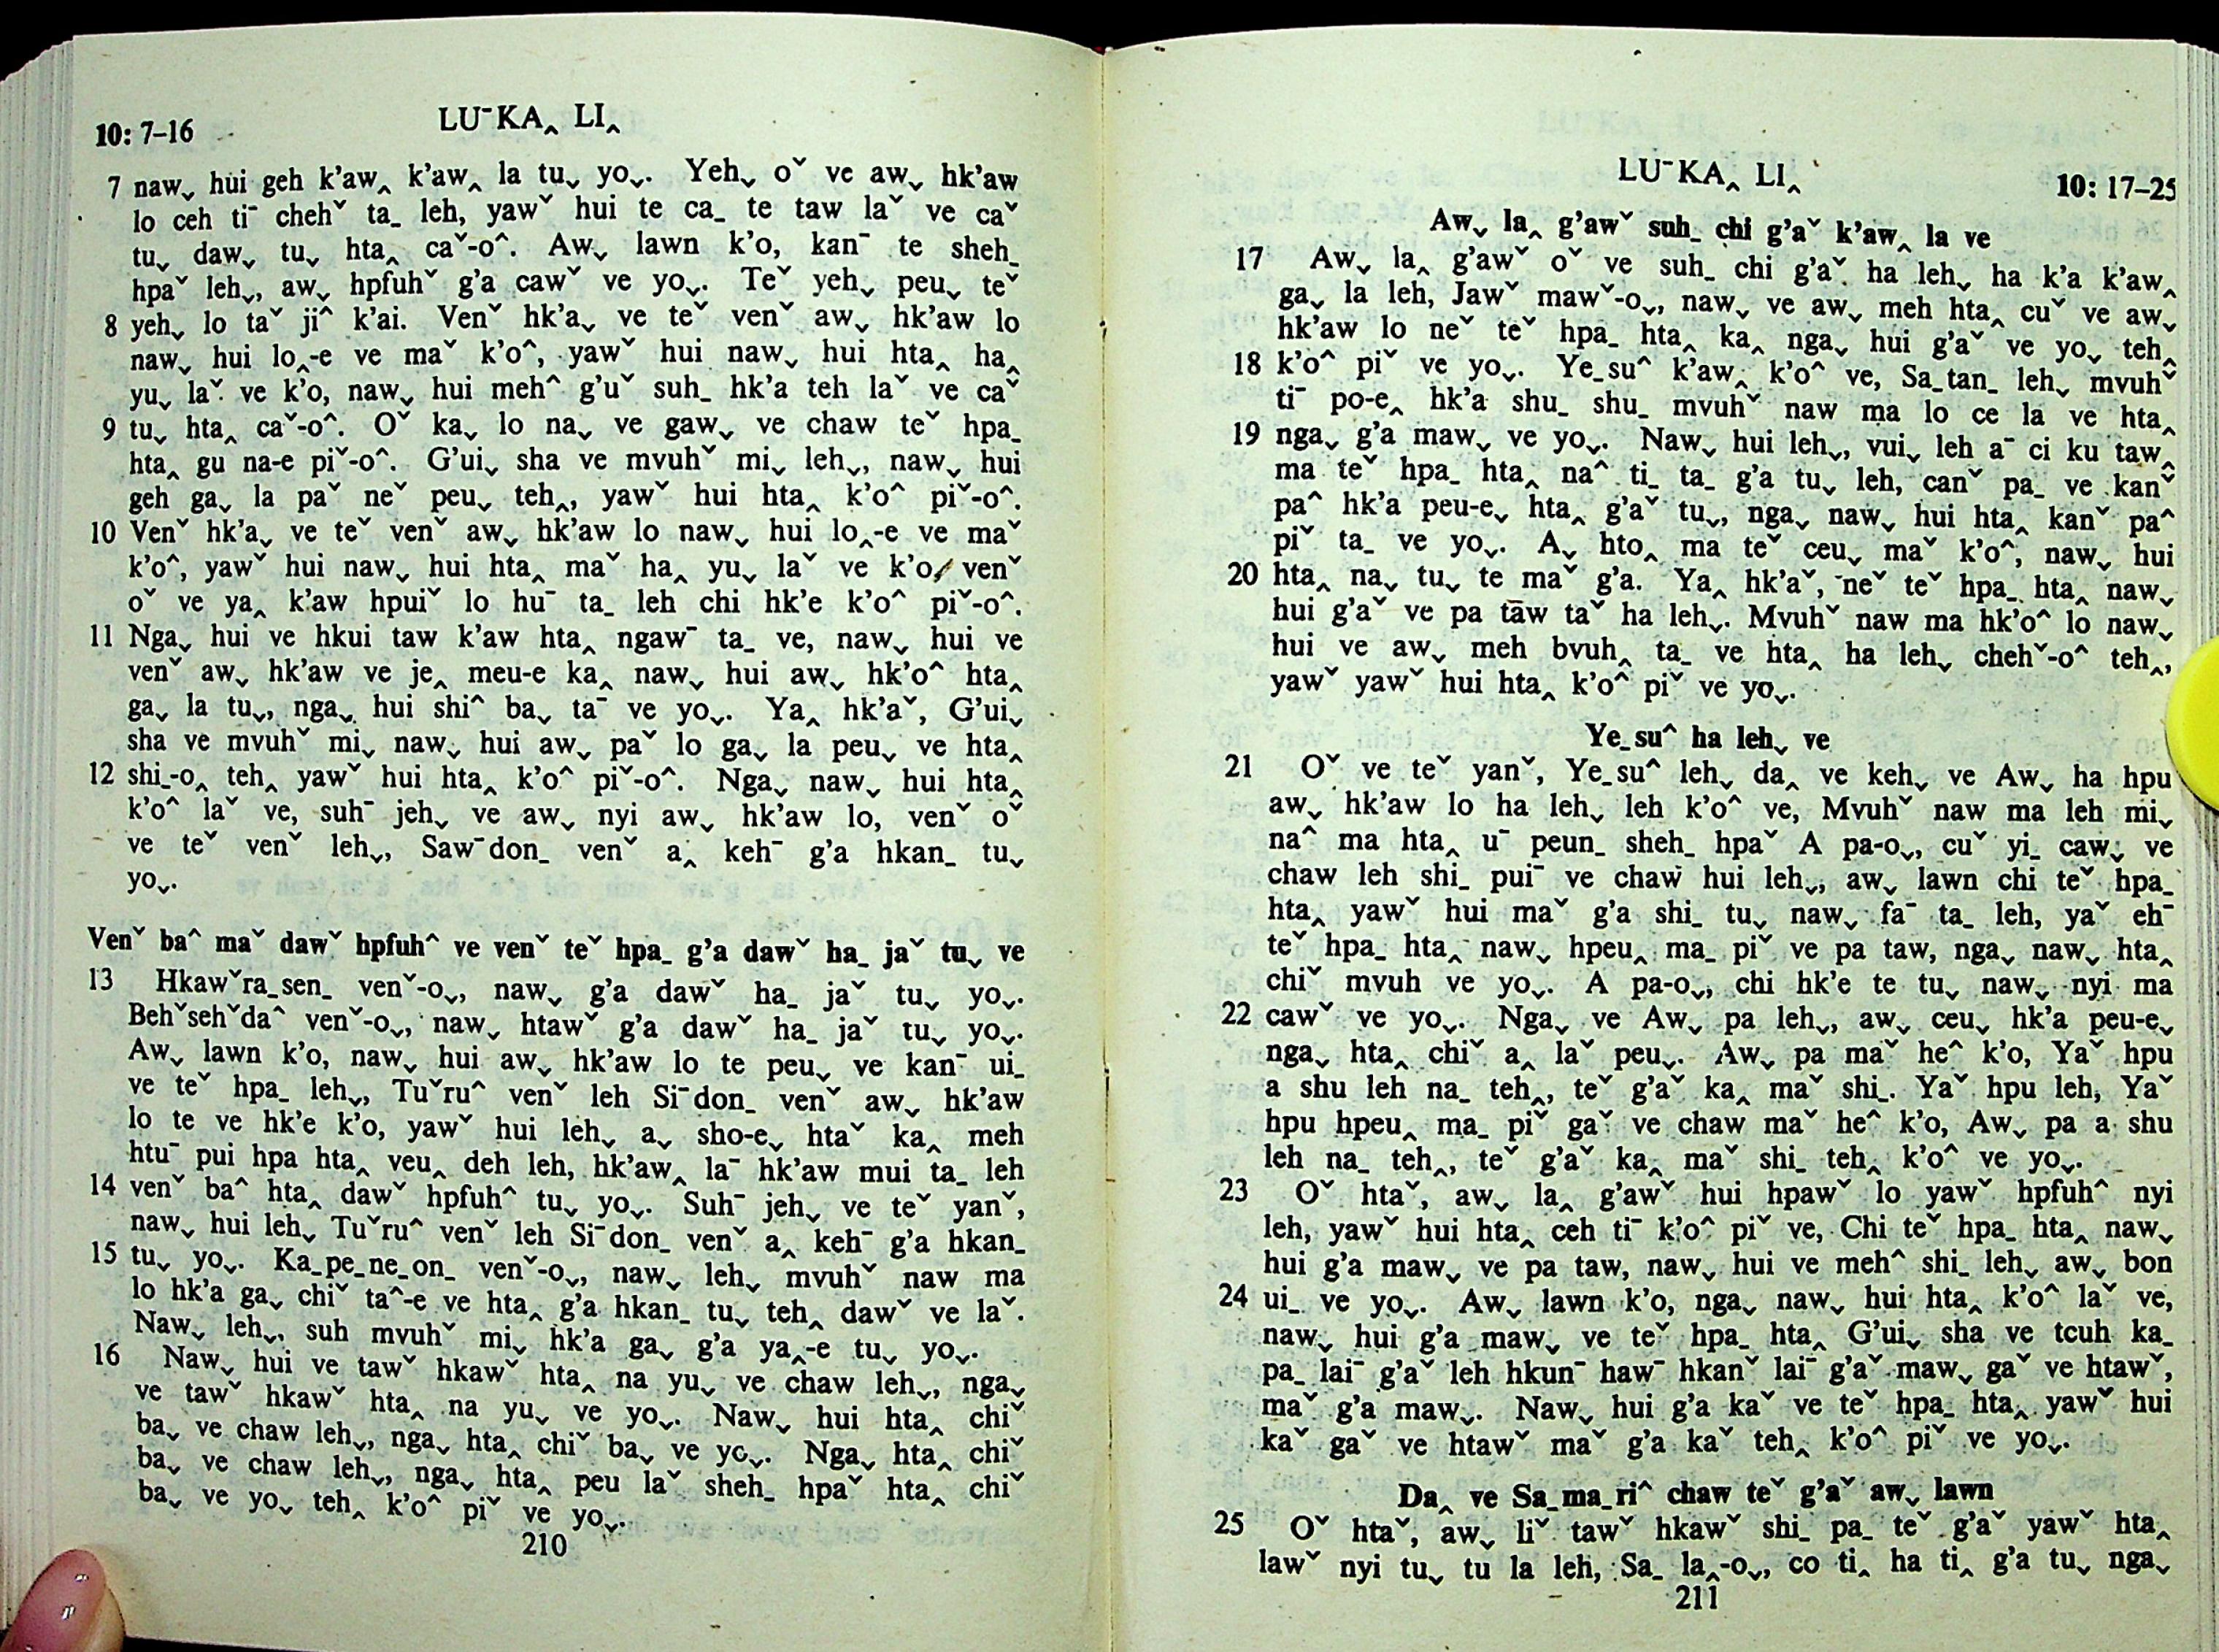 10: 7–16
LUˉKA‸ LI‸
7 nawˬ hui geh k’aw‸ k’aw‸ la tuˬ yoˬ. Yehˬ oˇ ve awˬ hk’aw
lo ceh tiˉ chehˇ taˍ leh, yawˇ hui te caˍ te taw laˇ ve caˇ
tuˬ dawˬ tuˬ hta‸ caˇ-oˆ. Awˬ lawn k’o, kanˉ te shehˍ
hpaˇ lehˬ, awˬ hpfuhˇ g’a cawˇ ve yoˬ. Teˇ yehˬ peuˬ teˇ
8 yehˬ lo taˇ jiˆ k’ai. Venˇ hk’aˬ ve teˇ venˇ awˬ hk’aw lo
nawˬ hui lo‸-e ve maˇ k’oˆ, yawˇ hui nawˬ hui hta‸ ha‸
yuˬ laˇ ve k’o, nawˬ hui mehˆ g’uˇ suhˍ hk’a teh laˇ ve caˇ
9 tuˬ hta‸ caˇ-oˆ. Oˇ kaˬ lo naˬ ve gawˬ ve chaw teˇ hpaˍ
hta‸ gu na-e piˇ-oˆ. G’uiˬ sha ve mvuhˇ miˬ lehˬ, nawˬ hui
geh gaˬ la paˇ neˇ peuˬ teh‸, yawˇ hui hta‸ k’oˆ piˇ-oˆ.
10 Venˇ hk’aˬ ve teˇ venˇ awˬ hk’aw lo nawˬ hui lo‸-e ve maˇ
k’oˆ, yawˇ hui nawˬ hui hta‸ maˇ ha‸ yuˬ laˇ ve k’o, venˇ
oˇ ve ya‸ k’aw hpuiˇ lo huˉ taˍ leh chi hk’e k’oˆ piˇ-oˆ.
11 Ngaˬ hui ve hkui taw k’aw hta‸ ngawˉ taˍ ve, nawˬ hui ve
venˇ awˬ hk’aw ve je‸ meu-e ka‸ nawˬ hui awˬ hk’oˆ hta‸
gaˬ la tuˬ, ngaˬ hui shiˆ baˬ taˉ ve yoˬ. Ya‸ hk’aˇ, G’uiˬ
sha ve mvuhˇ miˬ nawˬ hui awˬ paˇ lo gaˬ la peuˬ ve hta‸
12 shiˍ-o‸ teh‸ yawˇ hui hta‸ k’oˆ piˇ-oˆ. Ngaˬ nawˬ hui hta‸
k’oˆ laˇ ve, suhˉ jehˬ ve awˬ nyi awˬ hk’aw lo, venˇ oˇ
ve teˇ venˇ lehˬ, Sawˉdonˍ venˇ a‸ kehˉ g’a hkanˍ tuˬ
yoˬ.
Venˇ baˆ maˇ dawˇ hpfuhˆ ve venˇ teˇ hpaˍ g’a dawˇ haˍ jaˇ tuˬ ve
13 Hkawˇraˍsenˍ venˇ-oˬ, nawˬ g’a dawˇ haˍ jaˇ tuˬ yoˬ.
Behˇsehˇdaˆ venˇ-oˬ, nawˬ htawˇ g’a dawˇ haˍ jaˇ tuˬ yoˬ.
Awˬ lawn k’o, nawˬ hui awˬ hk’aw lo te peuˬ ve kanˉ uiˍ
ve teˇ hpaˍ lehˬ, Tuˇruˆ venˇ leh Siˉdonˍ venˇ awˬ hk’aw
lo te ve hk’e k’o, yawˇ hui lehˬ aˬ sho-eˬ htaˇ ka‸ meh
htuˉ pui hpa hta‸ veu‸ deh leh, hk’aw‸ laˉ hk’aw mui taˍ leh
14 venˇ baˆ hta‸ dawˇ hpfuhˆ tuˬ yoˬ. Suhˉ jehˬ ve teˇ yanˇ,
nawˬ hui lehˬ Tuˇruˆ venˇ leh Siˉdonˍ venˇ a‸ kehˉ g’a hkanˍ
15 tuˬ yoˬ. Kaˍpeˍneˍonˍ venˇ-oˬ, nawˬ lehˬ mvuhˇ naw ma
lo hk’a gaˬ chiˇ taˆ-e ve hta‸ g’a hkanˍ tuˬ teh‸ dawˇ ve laˇ.
Nawˬ lehˬ, suh mvuhˇ miˬ hk’a gaˬ g’a ya‸-e tuˬ yoˬ.
16 Nawˬ hui ve tawˇ hkawˇ hta‸ na yuˬ ve chaw lehˬ, ngaˬ
ve tawˇ hkawˇ hta‸ na yuˬ ve yoˬ. Nawˬ hui hta‸ chiˇ
baˬ ve chaw lehˬ, ngaˬ hta‸ chiˇ baˬ ve yoˬ. Ngaˬ hta‸ chiˇ
baˬ ve chaw lehˬ, ngaˬ hta‸ peu laˇ shehˍ hpaˇ hta‸ chiˇ
baˬ ve yoˬ teh‸ k’oˆ piˇ ve yoˬ.
210
LUˉKA‸ LI‸
10: 17–25
Awˬ la‸ g’awˇ suhˍ chi g’aˇ k’aw‸ la ve
17 Awˬ la‸ g’awˇ oˇ ve suhˍ chi g’aˇ ha lehˬ ha k’a k’aw‸
gaˬ la leh, Jawˇ mawˇ-oˬ, nawˬ ve awˬ meh hta‸ cuˇ ve awˬ
hk’aw lo neˇ teˇ hpaˍ hta‸ ka‸ ngaˬ hui g’aˇ ve yoˬ teh‸
18 k’oˆ piˇ ve yoˬ. Yeˍsuˆ k’aw‸ k’oˆ ve, Saˍtanˍ lehˬ mvuhˇ
tiˉ po-e‸ hk’a shuˍ shuˍ mvuhˇ naw ma lo ce la ve hta‸
19 ngaˬ g’a mawˬ ve yoˬ. Nawˬ hui lehˬ, vuiˬ leh aˉ ci ku taw‸
ma teˇ hpaˍ hta‸ naˆ tiˍ taˍ g’a tuˬ leh, canˇ paˍ ve kanˇ
paˆ hk’a peu-eˬ hta‸ g’aˇ tuˬ, ngaˬ nawˬ hui hta‸ kanˇ paˆ
piˇ taˍ ve yoˬ. Aˬ hto‸ ma teˇ ceuˬ maˇ k’oˆ, nawˬ hui
20 hta‸ naˬ tuˬ te maˇ g’a. Ya‸ hk’aˇ, neˇ teˇ hpaˍ hta‸ nawˬ
hui g’aˇ ve pa taw taˇ ha lehˬ. Mvuhˇ naw ma hk’oˆ lo nawˬ
hui ve awˬ meh bvuh‸ taˍ ve hta‸ ha lehˬ chehˇ-oˆ teh‸,
yawˇ yawˇ hui hta‸ k’oˆ piˇ ve yoˬ.
Yeˍsuˆ ha lehˬ ve
21 Oˇ ve teˇ yanˇ, Yeˍsuˆ lehˬ da‸ ve kehˬ ve Awˬ ha hpu
awˬ hk’aw lo ha lehˬ leh k’oˆ ve, Mvuhˇ naw ma leh miˬ
naˆ ma hta‸ uˉ peunˍ shehˍ hpaˇ A pa-oˬ, cuˇ yiˍ cawˬ ve
chaw leh shiˍ puiˉ ve chaw hui lehˬ, awˬ lawn chi teˇ hpaˍ
hta‸ yawˇ hui maˇ g’a shiˍ tuˬ nawˬ faˉ taˍ leh, yaˇ ehˉ
teˇ hpaˍ hta‸ nawˬ hpeu‸ maˍ piˇ ve pa taw, ngaˬ nawˬ hta‸
chiˇ mvuh ve yoˬ. A pa-oˬ, chi hk’e te tuˬ nawˬ nyi ma
22 cawˇ ve yoˬ. Ngaˬ ve Awˬ pa lehˬ, awˬ ceuˬ hk’a peu-eˬ
ngaˬ hta‸ chiˇ a‸ laˇ peuˬ. Awˬ pa maˇ heˆ k’o, Yaˇ hpu
a shu leh naˍ teh‸, teˇ g’aˇ ka‸ maˇ shiˍ. Yaˇ hpu leh, Yaˇ
hpu hpeu‸ maˍ piˇ gaˇ ve chaw maˇ heˆ k’o, Awˬ pa a shu
leh naˍ teh‸, teˇ g’aˇ ka‸ maˇ shiˍ teh‸ k’oˆ ve yoˬ.
23 Oˇ htaˇ, awˬ la‸ g’awˇ hui hpawˇ lo yawˇ hpfuhˆ nyi
leh, yawˇ hui hta‸ ceh tiˉ k’oˆ piˇ ve, Chi teˇ hpaˍ hta‸ nawˬ
hui g’a mawˬ ve pa taw, nawˬ hui ve mehˆ shiˍ lehˬ awˬ bon
24 uiˍ ve yoˬ. Awˬ lawn k’o, ngaˬ nawˬ hui hta‸ k’oˆ laˇ ve,
nawˬ hui g’a mawˬ ve teˇ hpaˍ hta‸ G’uiˬ sha ve tcuh kaˍ
paˍ laiˉ g’aˇ leh hkunˉ hawˉ hkanˇ laiˉ g’aˇ mawˬ gaˇ ve htawˇ,
maˇ g’a mawˬ. Nawˬ hui g’a kaˇ ve teˇ hpaˍ hta‸ yawˇ hui
kaˇ gaˇ ve htawˇ maˇ g’a kaˇ teh‸ k’oˆ piˇ ve yoˬ.
Da‸ ve Saˍmaˍriˆ chaw teˇ g’aˇ awˬ lawn
25 Oˇ htaˇ, awˬ liˇ tawˇ hkawˇ shiˍ paˍ teˇ g’aˇ yawˇ hta‸
lawˇ nyi tuˬ tu la leh, Saˍ la‸-oˬ, co ti‸ ha ti‸ g’a tuˬ ngaˬ
211